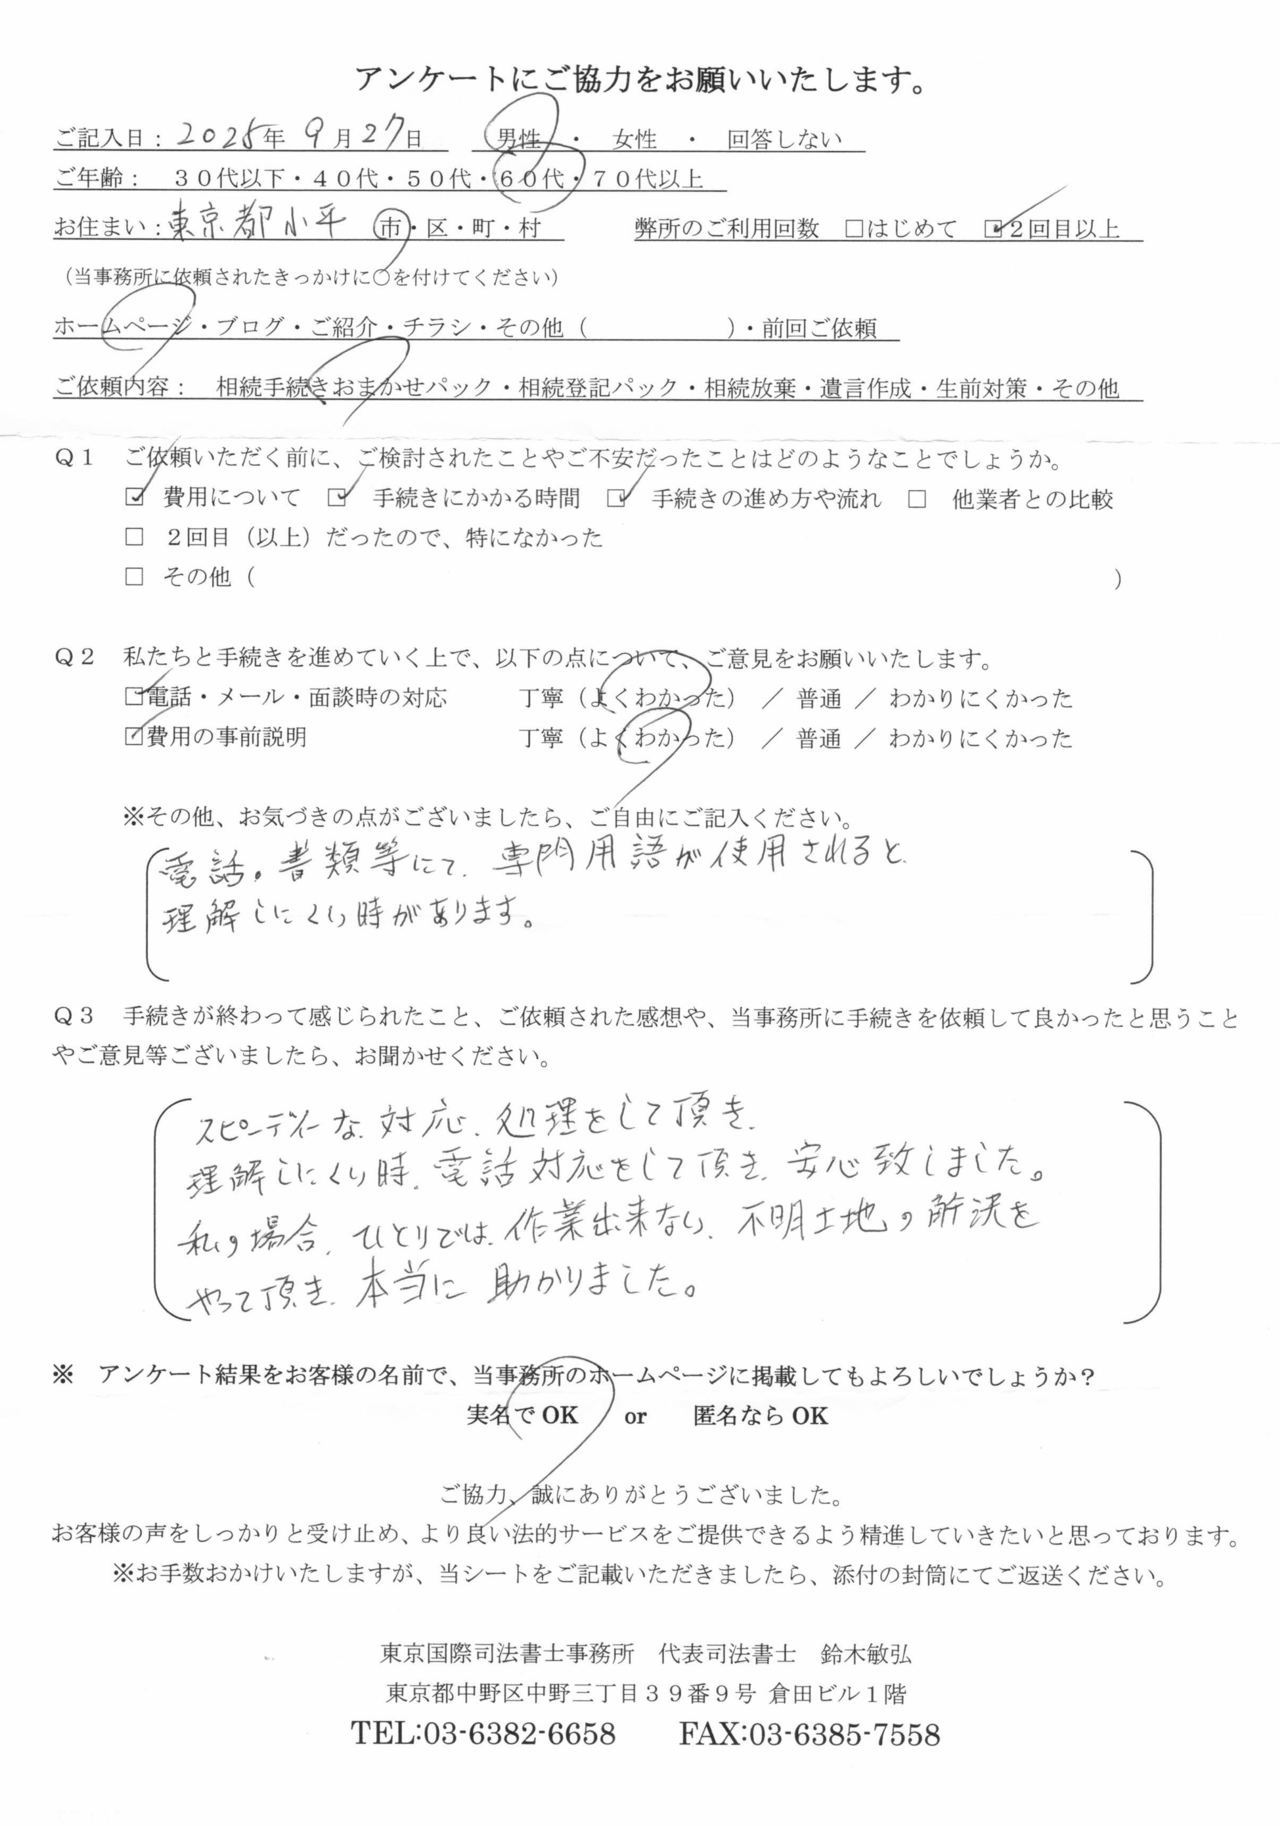 アンケートにご協力をお願いいたします。
ご記入日：2025年 9月27日　男性 ・ 女性 ・ 回答しない
ご年齢：　30代以下・40代・50代・60代・70代以上
お住まい：東京都小平 市・区・町・村　弊所のご利用回数 □はじめて ☑2回目以上
（当事務所に依頼されたきっかけに○を付けてください）
ホームページ・ブログ・ご紹介・チラシ・その他（　　　　　　）・前回ご依頼
ご依頼内容：　相続手続きおまかせパック・相続登記パック・相続放棄・遺言作成・生前対策・その他
Q1　ご依頼いただく前に、ご検討されたことやご不安だったことはどのようなことでしょうか。
☑ 費用について ☑ 手続きにかかる時間 ☑ 手続きの進め方や流れ □ 他業者との比較
□ 2回目（以上）だったので、特になかった
□ その他（　　　　　　）
Q2　私たちと手続きを進めていく上で、以下の点について、ご意見をお願いいたします。
☑電話・メール・面談時の対応　丁寧（よくわかった） ／ 普通 ／ わかりにくかった
☑費用の事前説明　丁寧（よくわかった） ／ 普通 ／ わかりにくかった
※その他、お気づきの点がございましたら、ご自由にご記入ください。
電話。書類等にて、専門用語が使用されると、
理解しにくい時があります。
Q3　手続きが終わって感じられたこと、ご依頼された感想や、当事務所に手続きを依頼して良かったと思うこと
やご意見等ございましたら、お聞かせください。
スピーディーな対応、処理をして頂き、
理解しにくい時、電話対応をして頂き、安心致しました。
私の場合、ひとりでは、作業出来ない、不明土地の解決を
やって頂き、本当に助かりました。
※　アンケート結果をお客様の名前で、当事務所のホームページに掲載してもよろしいでしょうか？
実名でOK　or　匿名ならOK
ご協力、誠にありがとうございました。
お客様の声をしっかりと受け止め、より良い法的サービスをご提供できるよう精進していきたいと思っております。
※お手数おかけいたしますが、当シートをご記載いただきましたら、添付の封筒にてご返送ください。
東京国際司法書士事務所　代表司法書士　鈴木敏弘
東京都中野区中野三丁目39番9号 倉田ビル1階
TEL:03-6382-6658　FAX:03-6385-7558